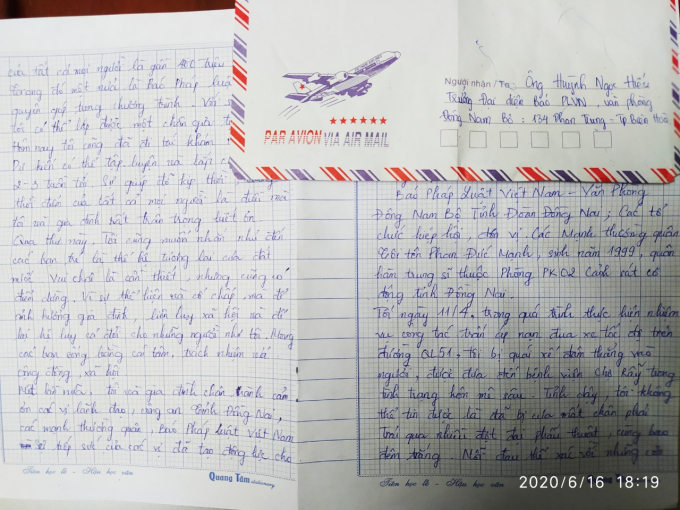 của tất cả mọi người là gần 400 triệu
Trong đó một nửa là Báo Pháp luật
quyên góp từng chương trình. Với
tôi có thể lắp được một chân giả
Hôm nay tôi cũng đã đi tái khám
Dự kiến có thể tập luyện và lắp
2-3 tuần tới. Sự giúp đỡ kịp thời
thời điểm của tất cả mọi người là điều mà
tôi và gia đình rất trân trọng biết ơn
Qua thư này, Tôi cũng muốn nhắn nhủ đến
các bạn trẻ là thế hệ tương lai của đất
nước. Vui chơi là cần thiết, nhưng cũng có
điểm dừng. Vì sự thể hiện mà cố chấp, mà để
ảnh hưởng gia đình, liên lụy xã hội mà để
lại hệ lụy cả đời cho những người như tôi. Mong
các bạn sống bằng cái tâm, trách nhiệm với
cộng đồng, xã hội
Một lần nữa, tôi và gia đình chân thành cảm
ơn các vị lãnh đạo, công an Tỉnh Đồng Nai,
các mạnh thường quân, Báo Pháp luật Việt Nam
tiếp sức của các vị đã tạo động lực cho
Tiên học lễ - Hậu học văn
Quang Tâm stationery
PAR AVION VIA AIR MAIL
Người nhận/To: Ông Huỳnh Ngọc Hiếu
Trưởng Đại diện Báo PLVN, văn phòng
Đông Nam Bộ: 134 Phan Trung - Tp Biên Hoà
Báo Pháp Luật Việt Nam - Văn Phòng
Đông Nam Bộ Tỉnh Đoàn Đồng Nai; Các tổ
chức hiệp hội, đơn vị. Các Mạnh thường quân
Tôi tên Phan Đức Mạnh, sinh năm 1999, quân
hàm trung sĩ thuộc Phòng PK02 Cảnh sát cơ
động tỉnh Đồng Nai.
Tối ngày 11/4, trong quá trình thực hiện nhiệm
vụ công tác trấn áp nạn đua xe tốc độ trên
đường QL51, tôi bị quái xế đâm thẳng vào
người, được đưa đến bệnh viện Chợ Rẫy trong
tình trạng hôn mê sâu. Tỉnh dậy, tôi không
thể tin được là đã bị cưa mất chân phải
Trải qua nhiều đợt đại phẫu thuật, cùng bao
đêm trắng. Nỗi đau thể xác với những cơn
Tiên học lễ - Hậu học văn
2020/6/16 18:19